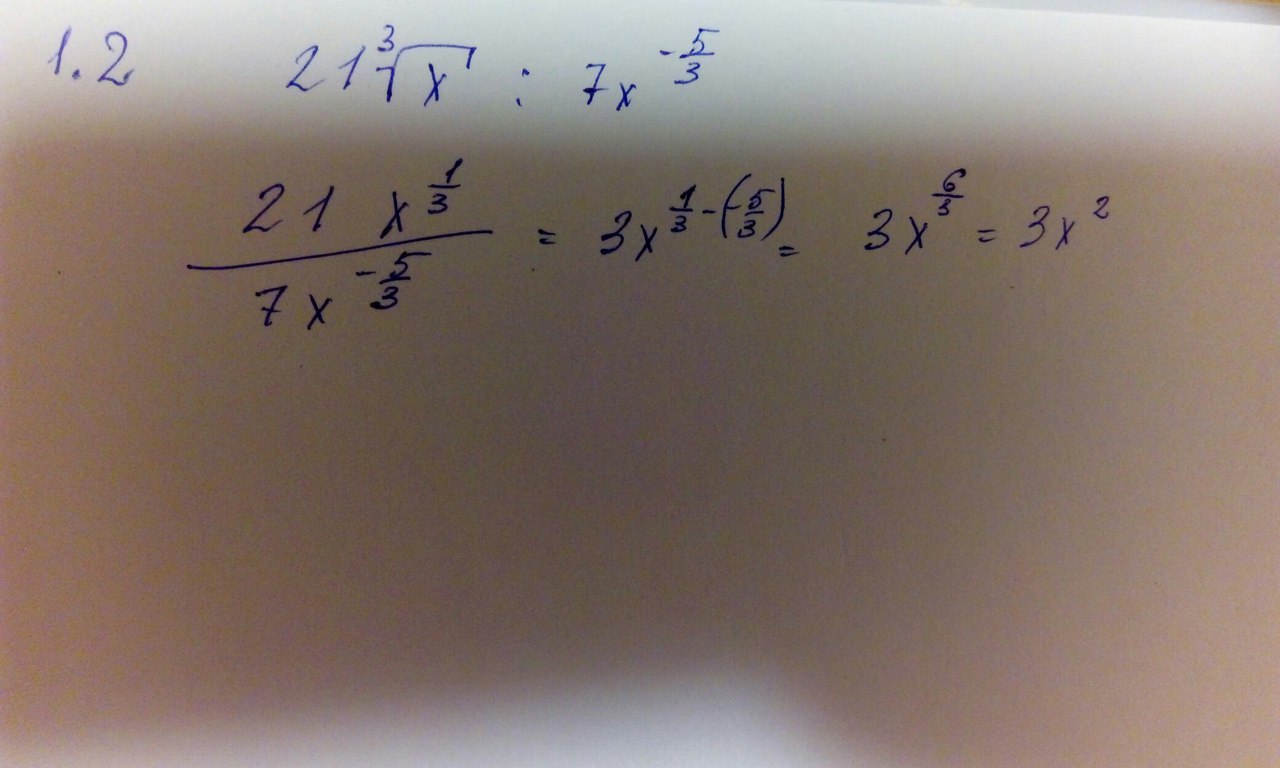 1.2 21∛x : 7x^(-5/3)
(21 x^(1/3))/(7x^(-5/3)) = 3x^(1/3-(-5/3)) = 3x^(6/3) = 3x^2